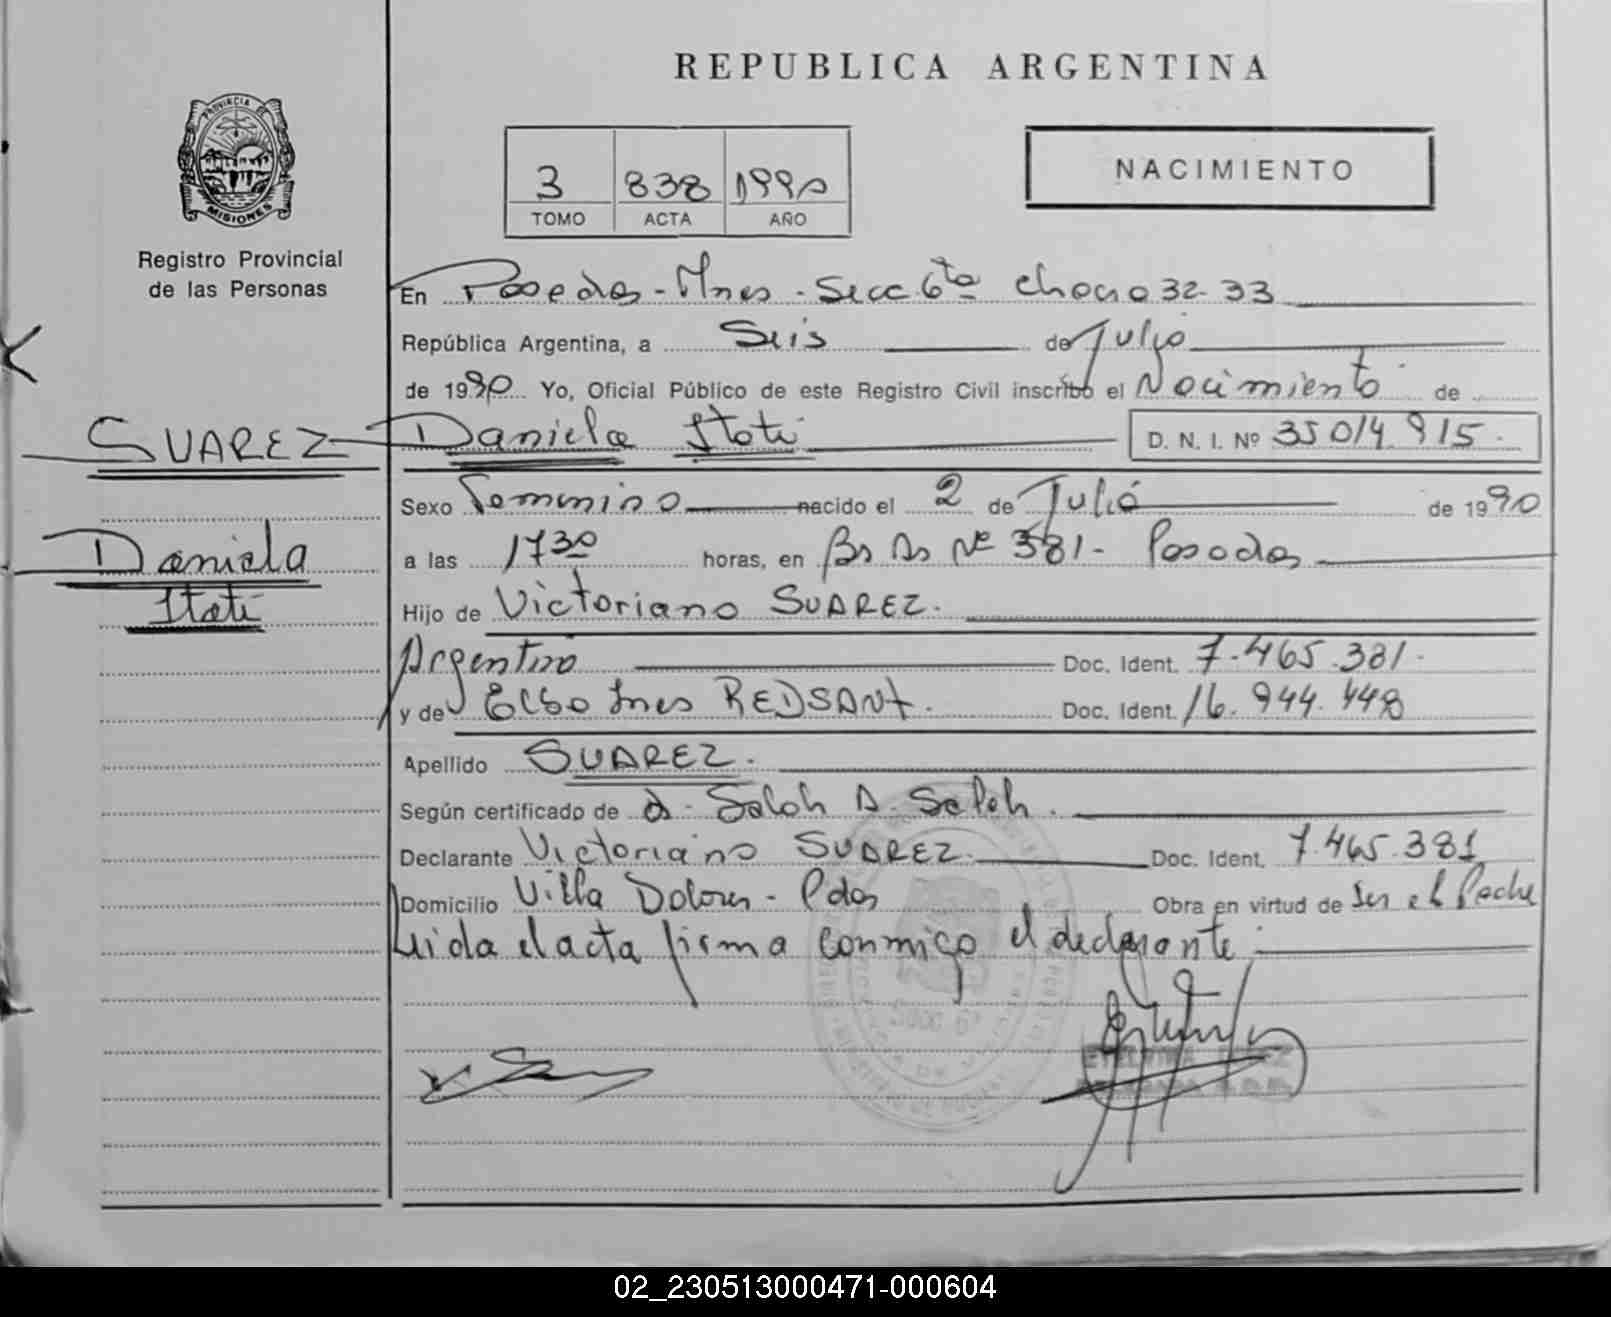 REPUBLICA ARGENTINA
PROVINCIA DE
MISIONES
Registro Provincial
de las Personas
3 838 1990
TOMO ACTA AÑO
NACIMIENTO
En Posadas - Mnes - Secc 6ta Chacra 32-33
República Argentina, a Seis de Julio
de 1990 Yo, Oficial Público de este Registro Civil inscribo el Nacimiento de
SUAREZ Daniela Itatí D. N. I. Nº 35014915.
Sexo Femenino nacido el 2 de Julio de 1990
Daniela
Itatí
a las 1730 horas, en Bs As Nº 381 - Posadas
Hijo de Victoriano SUAREZ.
Argentino Doc. Ident. 7.465.381.
y de Elba Ines REDSANT. Doc. Ident. 16.944.448
Apellido SUAREZ.
Según certificado de d. Saleh A. Saleh.
Declarante Victoriano SUAREZ. Doc. Ident. 7.465.381
Domicilio Villa Dolores - Pdas Obra en virtud de Ser el Padre
Leida el acta firma conmigo el declarante.
02_230513000471-000604